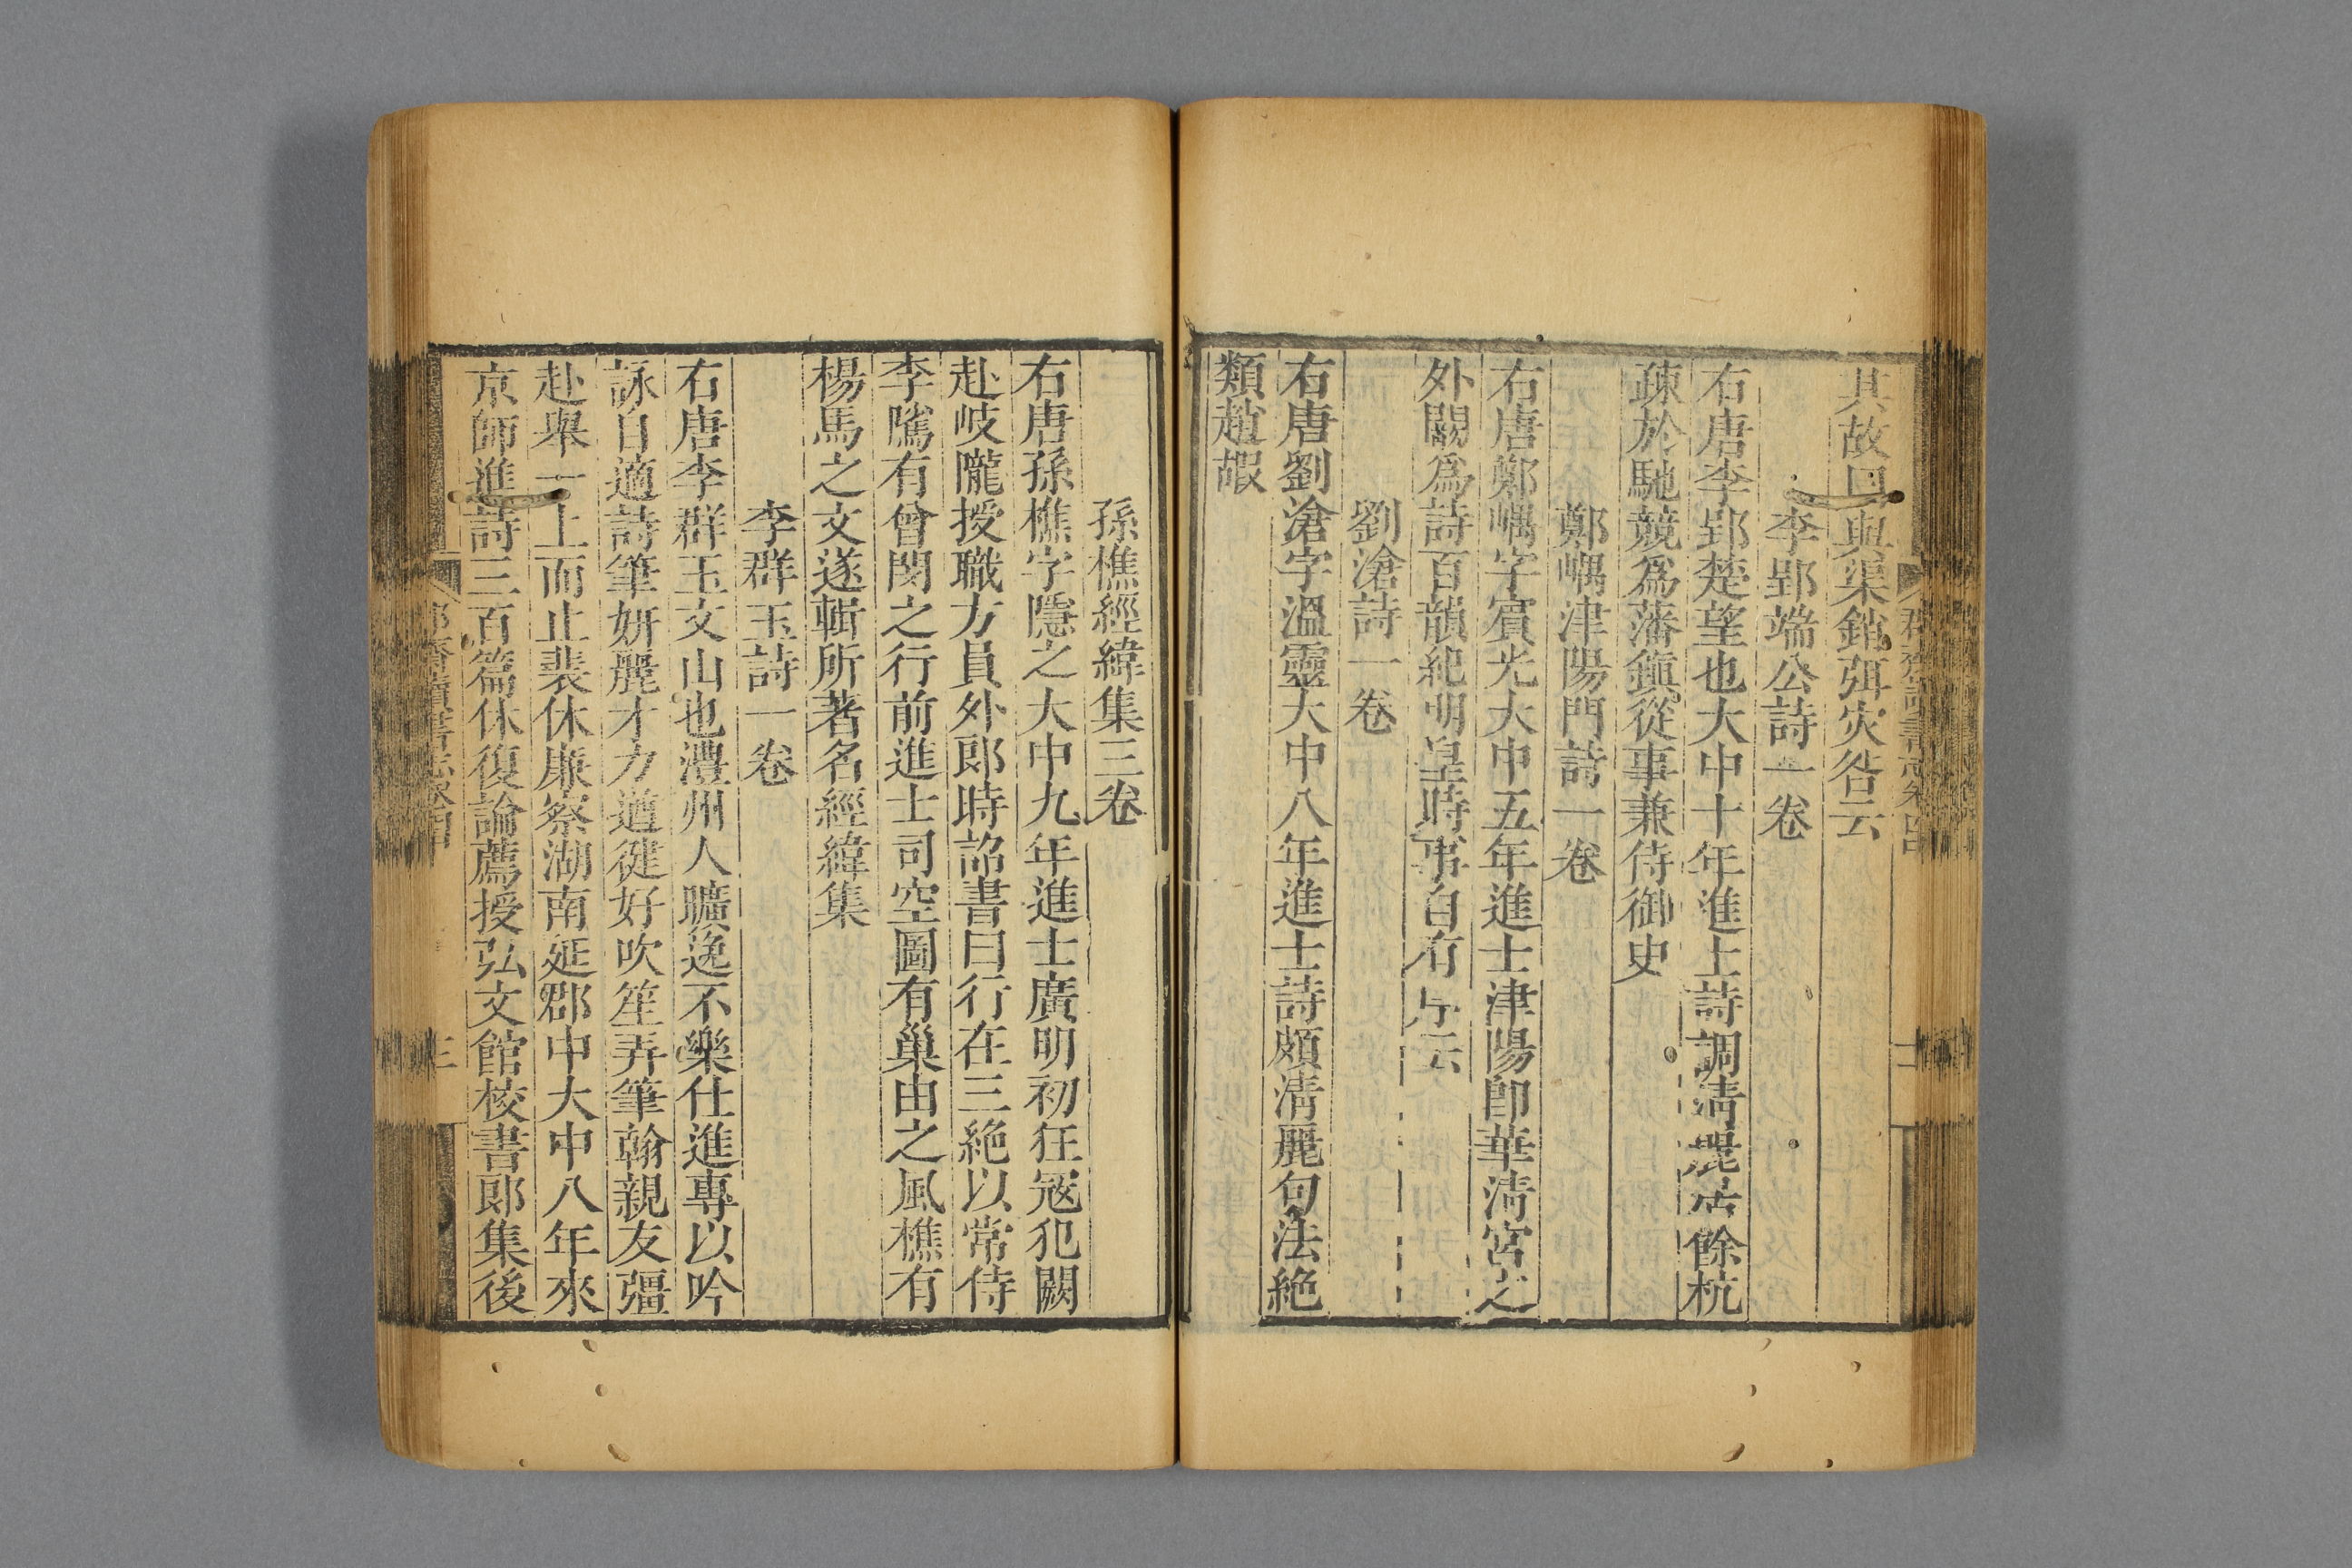 其故曰與渠銷弭灾咎云
李郢端公詩一卷
右唐李郢楚望也大中十年進士詩調清麗居餘杭
疎於馳競爲藩鎮從事兼侍御史
鄭嵎津陽門詩一卷
右唐鄭嵎字賔光大中五年進士津陽卽華清宮之
外闕爲詩百韻紀明皇時事自有序云
劉滄詩一卷
右唐劉滄字溫靈大中八年進士詩頗清麗句法絶
類趙嘏
孫樵經緯集三卷
右唐孫樵字隱之大中九年進士廣明初狂冦犯闕
赴岐隴授職方員外郎時詔書曰行在三絶以常侍
李隲有曾閔之行前進士司空圖有巢由之風樵有
楊馬之文遂輯所著名經緯集
李群玉詩一卷
右唐李群玉文山也澧州人曠逸不樂仕進專以吟
詠自適詩筆妍麗才力遒健好吹笙弄筆翰親友彊
赴舉一上而止裴休廉察湖南延郡中大中八年來
京師進詩三百篇休復論薦授弘文館校書郎集後